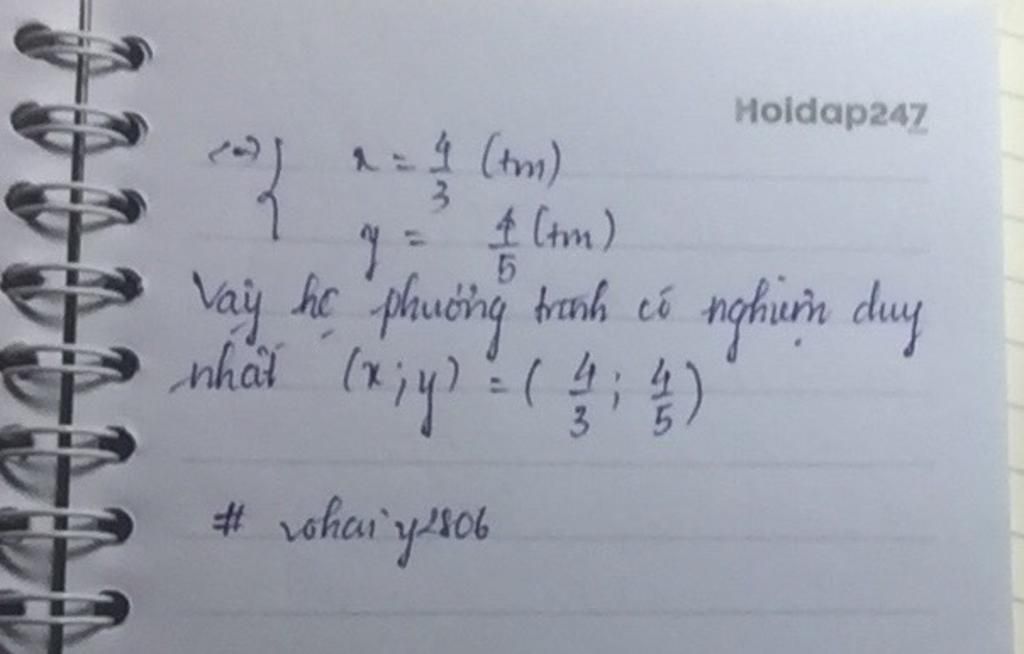 Hoidap247
(=) { x = 4/3 (tm)
y = 4/5 (tm)
Vậy hệ phương trình có nghiệm duy
nhất (x;y) = (4/3; 4/5)
# vohaiy2806